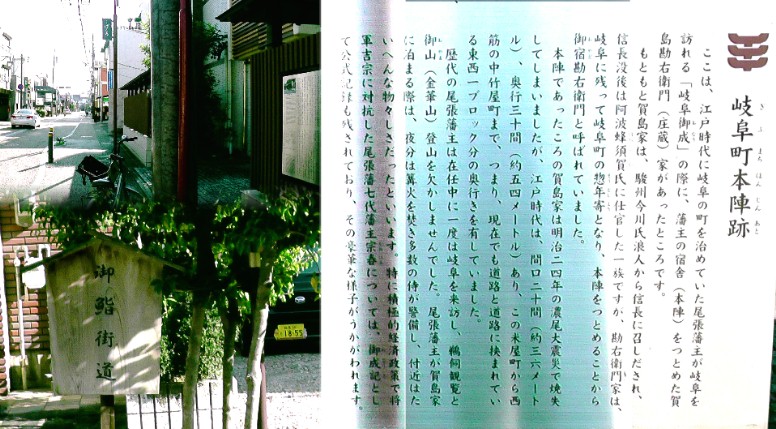 岐阜町本陣跡
ぎふまちほんじんあと
ここは、江戸時代に岐阜の町を治めていた尾張藩主が岐阜を
訪れる「岐阜御成」の際に、藩主の宿舎（本陣）をつとめた賀
島勘右衛門（圧蔵）家があったところです。
もともと賀島家は、駿州今川氏浪人から信長に召しだされ、
信長没後は阿波蜂須賀氏に仕官した一族ですが、勘右衛門家は、
岐阜に残って岐阜町の惣年寄となり、本陣をつとめることから
御宿勘右衛門と呼ばれていました。
本陣であったころの賀島家は明治二四年の濃尾大震災で焼失
してしまいましたが、江戸時代は、間口二十間（約三六メート
ル）、奥行三十間（約五四メートル）あり、この米屋町から西
筋の中竹屋町まで、つまり、現在でも道路と道路に挟まれてい
る東西一ブロック分の奥行きを有していました。
歴代の尾張藩主は在任中に一度は岐阜を来訪し、鵜飼観覧と
御山（金華山）登山を欠かしませんでした。尾張藩主が賀島家
に泊まる際は、夜分は篝火を焚き多数の侍が警備し、付近はた
いへんな物々しさだったといいます。特に積極的経済政策で将
軍吉宗に対抗した尾張藩七代藩主宗春については、御成記とし
て公式記録も残されており、その豪華な様子がうかがわれます。
御鮨街道
18-55